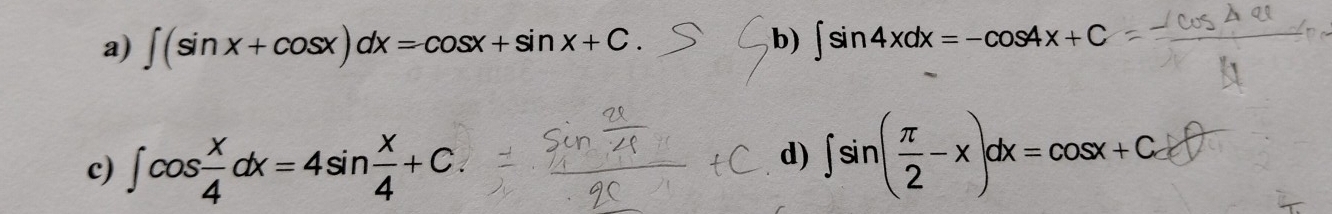 a) ∫(sin x + cosx) dx = cosx + sin x + C. S
b) ∫ sin4xdx = -cos4x + C = -cos 4x / 4
c) ∫ cos x/4 dx = 4sin x/4 + C. = sin x/4 / +C.
d) ∫ sin(π/2 - x)dx = cosx + C